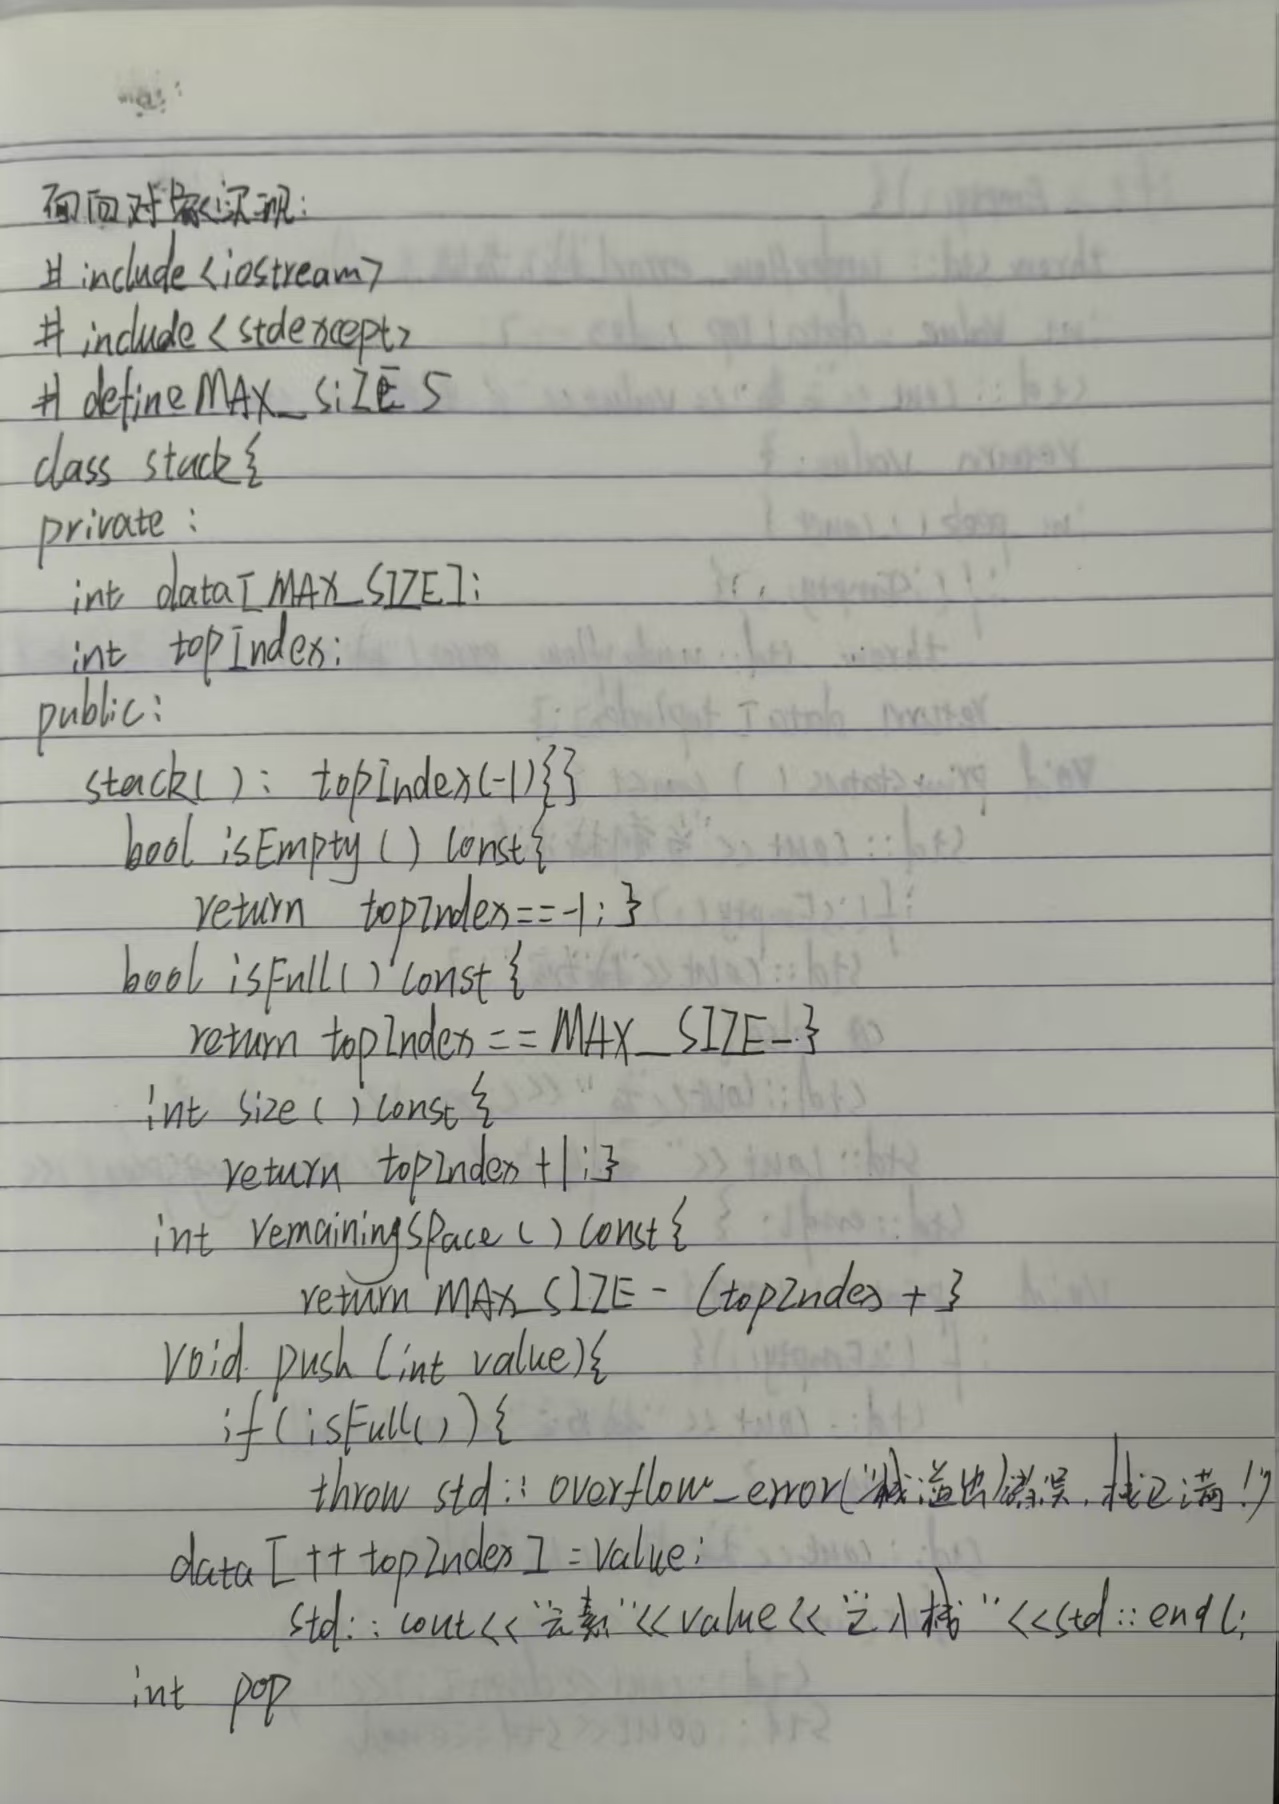 面向对象实现:
#include<iostream>
#include<stdexcept>
#define MAX_SiZE 5
class stack{
private:
int data[MAX_SIZE];
int topIndex;
public:
stack(): topIndex(-1){}
bool isEmpty() const{
return topIndex==-1;}
bool isFull() const{
return topIndex==MAX_SIZE-}
int size() const{
return topIndex+1;}
int remainingSpace() const{
return MAX_SIZE-(topIndex+}
void push(int value){
if(isFull()){
throw std::overflow_error("栈溢出错误,栈已满!")
data[++topIndex]=value;
std::cout<<"元素"<<value<<"已入栈"<<std::endl;
int pop